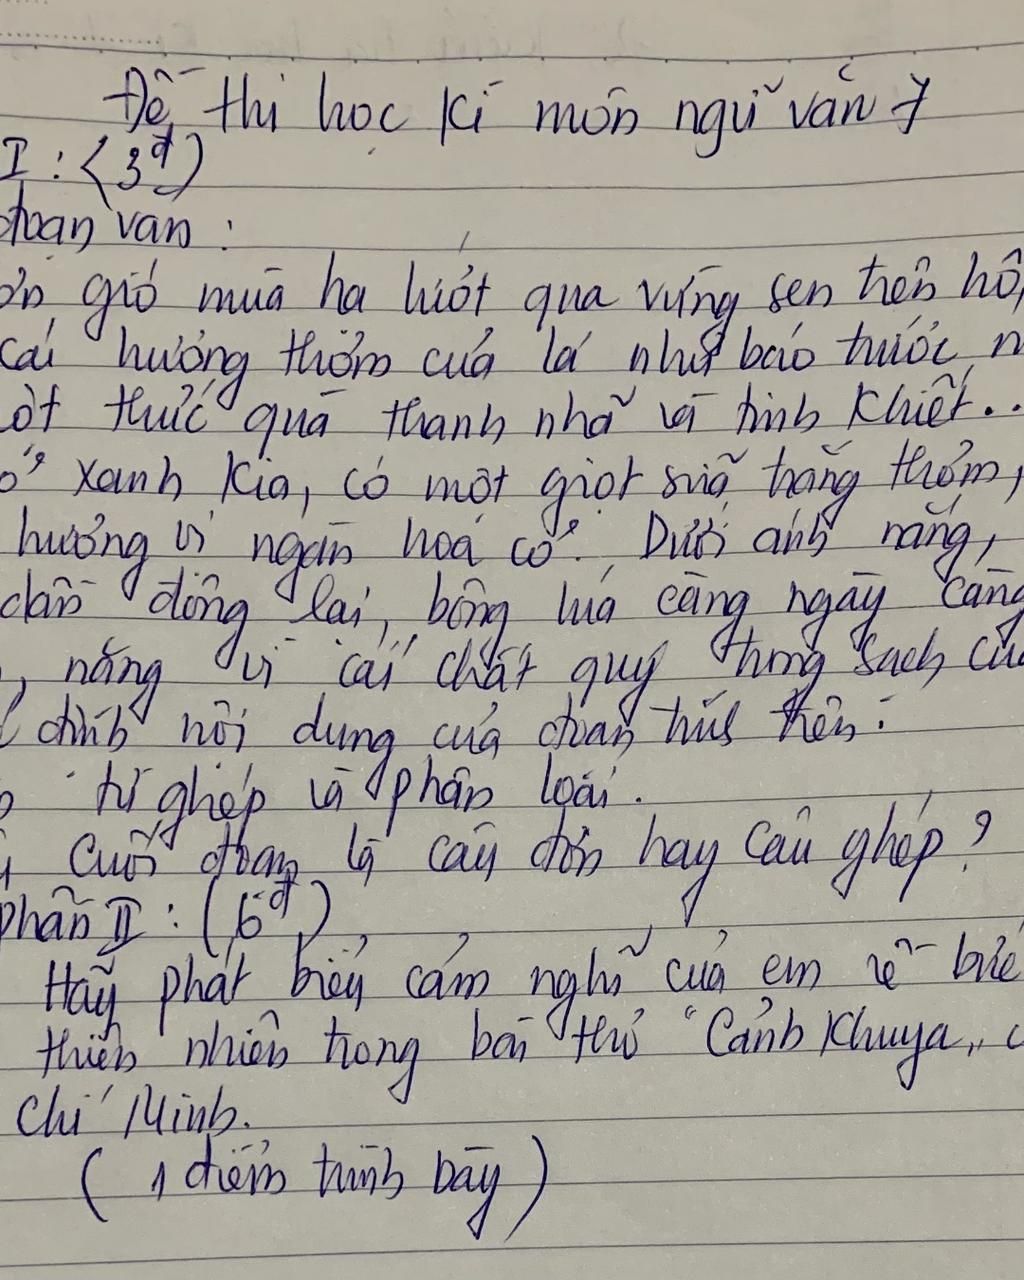 Đề thi học kì môn ngữ văn 7
I : (3đ)
đoạn văn :
ơn gió mùa hạ lướt qua vừng sen trên hồ,
cái hương thơm của lá như báo trước m
ột thức quà thanh nhã và tinh khiết...
ỏ xanh kia, có một giọt sữa trắng thơm,
hương vị ngàn hoa cỏ. Dưới ánh nắng,
dần đông lại, bông lúa càng ngày càng
, nặng vì cái chất quý trong sạch củ
định nội dung của đoạn trích trên.
từ ghép và phân loại.
cuối đoạn là câu đơn hay câu ghép?
Phần II : (6đ)
Hãy phát biểu cảm nghĩ của em về bức
thiên nhiên trong bài thơ "Cảnh khuya" c
Chí Minh.
( 1 điểm trình bày )